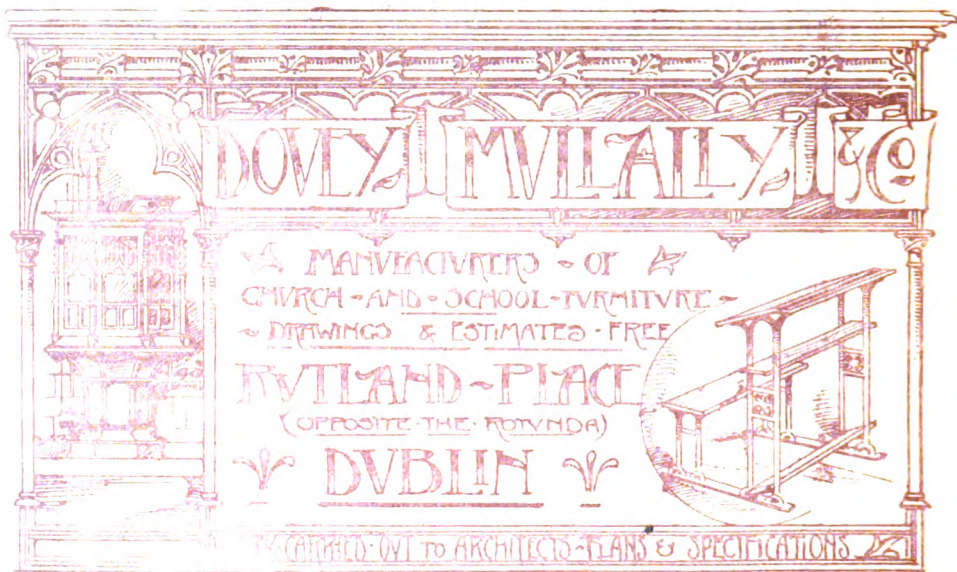 DOVEY MVLLALLY & Co
MANVFACTVRERS - OF
CHVRCH - AND - SCHOOL - FVRNITVRE -
- DRAWINGS & ESTIMATES - FREE
RVTLAND - PLACE
(OPPOSITE - THE - ROTVNDA)
DVBLIN
CARRIED - OVT TO ARCHITECTS - PLANS & SPECIFICATIONS